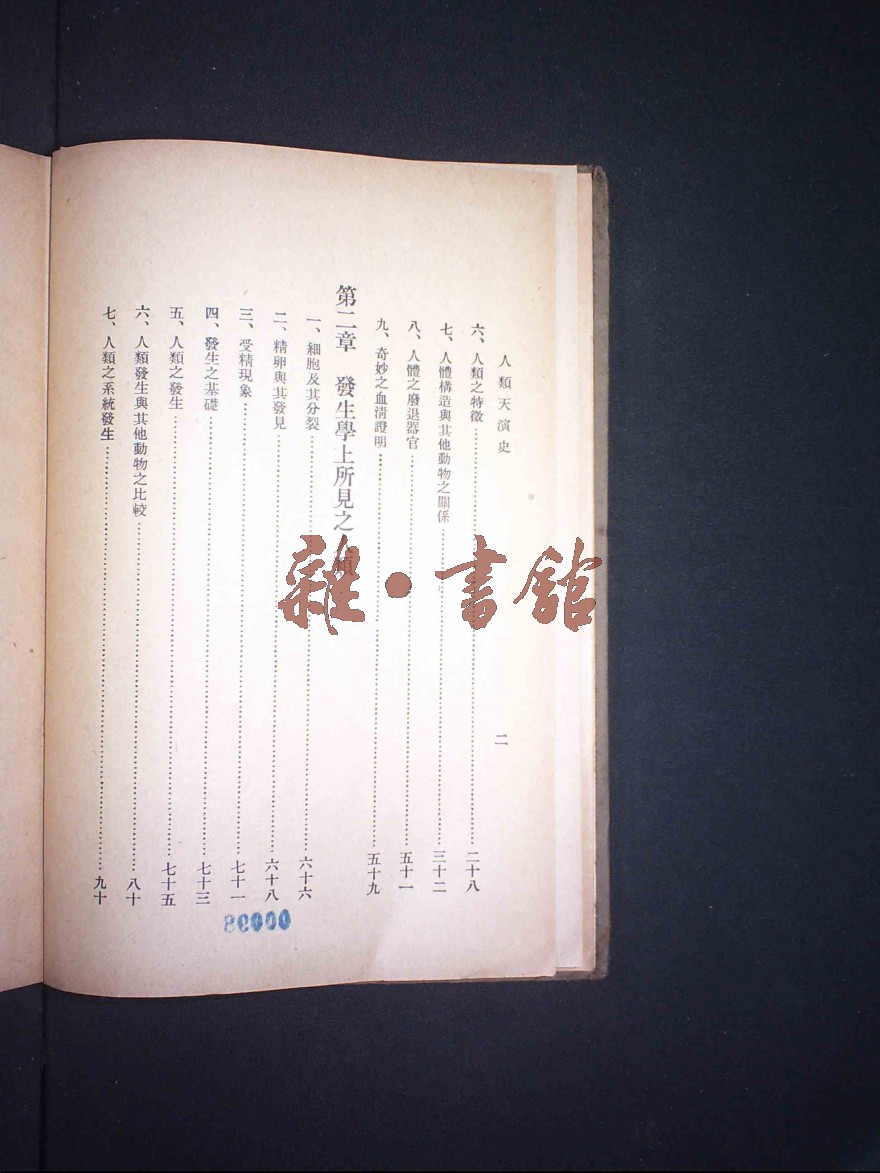 人類天演史
二
六、人類之特徵……二十八
七、人體構造與其他動物之關係……三十二
八、人體之廢退器官……五十一
九、奇妙之血清證明……五十九
第二章 發生學上所見之人類
一、細胞及其分裂……六十六
二、精卵與其發見……六十八
三、受精現象……七十一
四、發生之基礎……七十三
五、人類之發生……七十五
六、人類發生與其他動物之比較……八十
七、人類之系統發生……九十
雜·書館